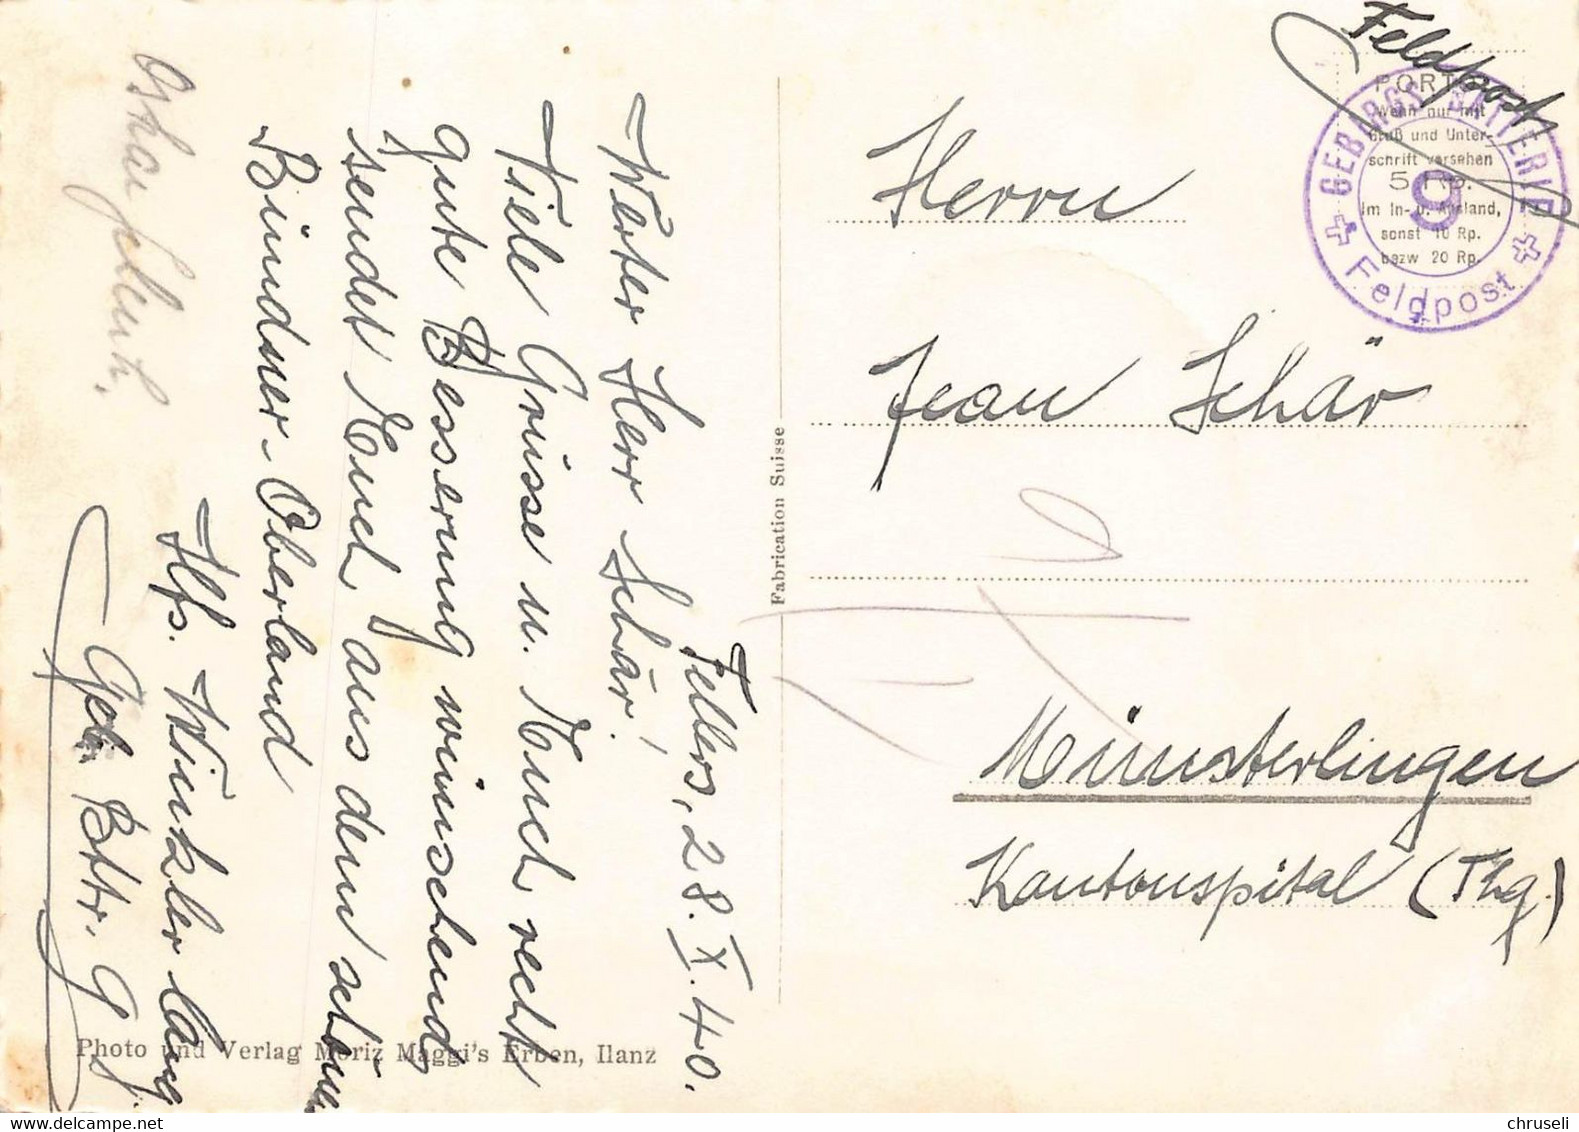 Feldpost
PORTO
Wenn nur mit
Gruß und Unter-
schrift versehen
5 Rp.
im In- u. Ausland,
sonst 10 Rp.
bezw 20 Rp.
GEBIRGS BATTERIE
9
Feldpost
Herrn
Jean Schär
Münsterlingen
Kantonspital (Thg.)
Fabrication Suisse
Fellers, 28. X. 40.
Werter Herr Schär!
Viele Grüsse u. Euch recht
gute Besserung wünschend
sendet Euch aus dem schönen
Bündner-Oberland
Hfs. Winkler lang
Geb. Bttr. 9
Photo und Verlag Moriz Maggi's Erben, Ilanz
chruseli